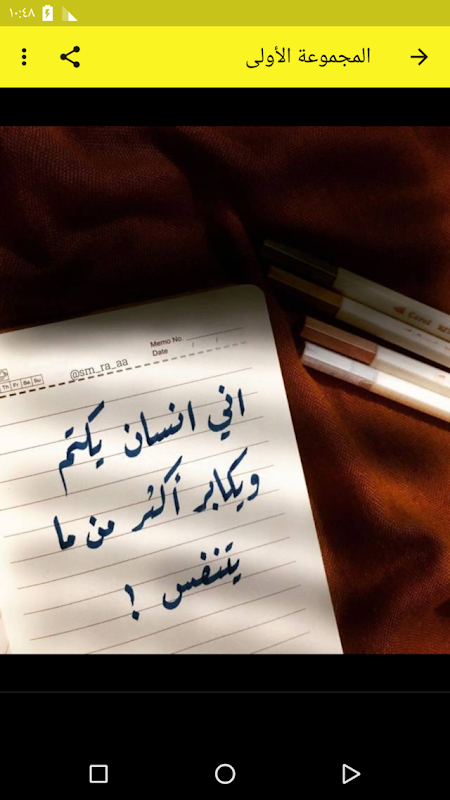 ١٠:٤٨
المجموعة الأولى
Memo No.
Date / /
Th Fr Sa Su
@sm_ra_aa
اني انسان يكتم
ويكابر أكثر من ما
يتنفس !